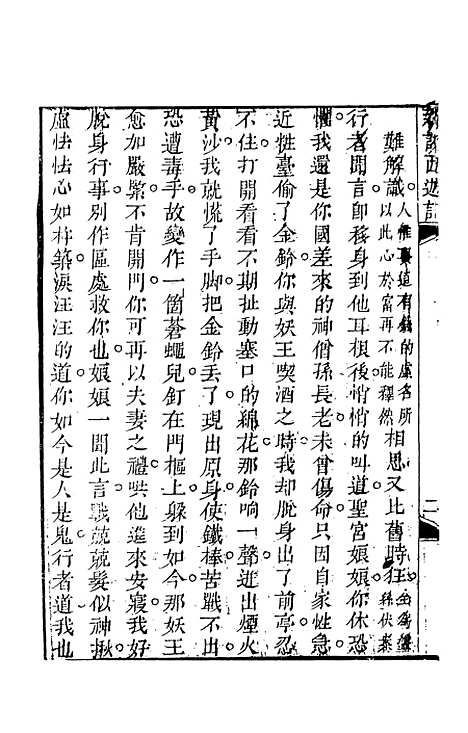 新說西遊記
二
難解識人雖要道有錢的虛名所以此心於富再不能釋然相思又比舊時狂金為繼孫伏案
行者聞言即移身到他耳根後悄悄的叫道聖宮娘娘你休恐
懼我還是你國差來的神僧孫長老未曾傷命只因自家性急
近粧臺偷了金鈴你與妖王喫酒之時我却脫身出了前亭忍
不住打開看看不期扯動塞口的綿花那鈴响一聲迸出煙火
黃沙我就慌了手脚把金鈴丢了現出原身使鐵棒苦戰不出
恐遭毒手故變作一箇蒼蠅兒釘在門樞上躲到如今那妖王
愈加嚴緊不肯開門你可再以夫妻之禮哄他進來安寢我好
脫身行事別作區處救你也娘娘一聞此言戰兢兢髮似神揪
虛怯怯心如杵築淚汪汪的道你如今是人是鬼行者道我也